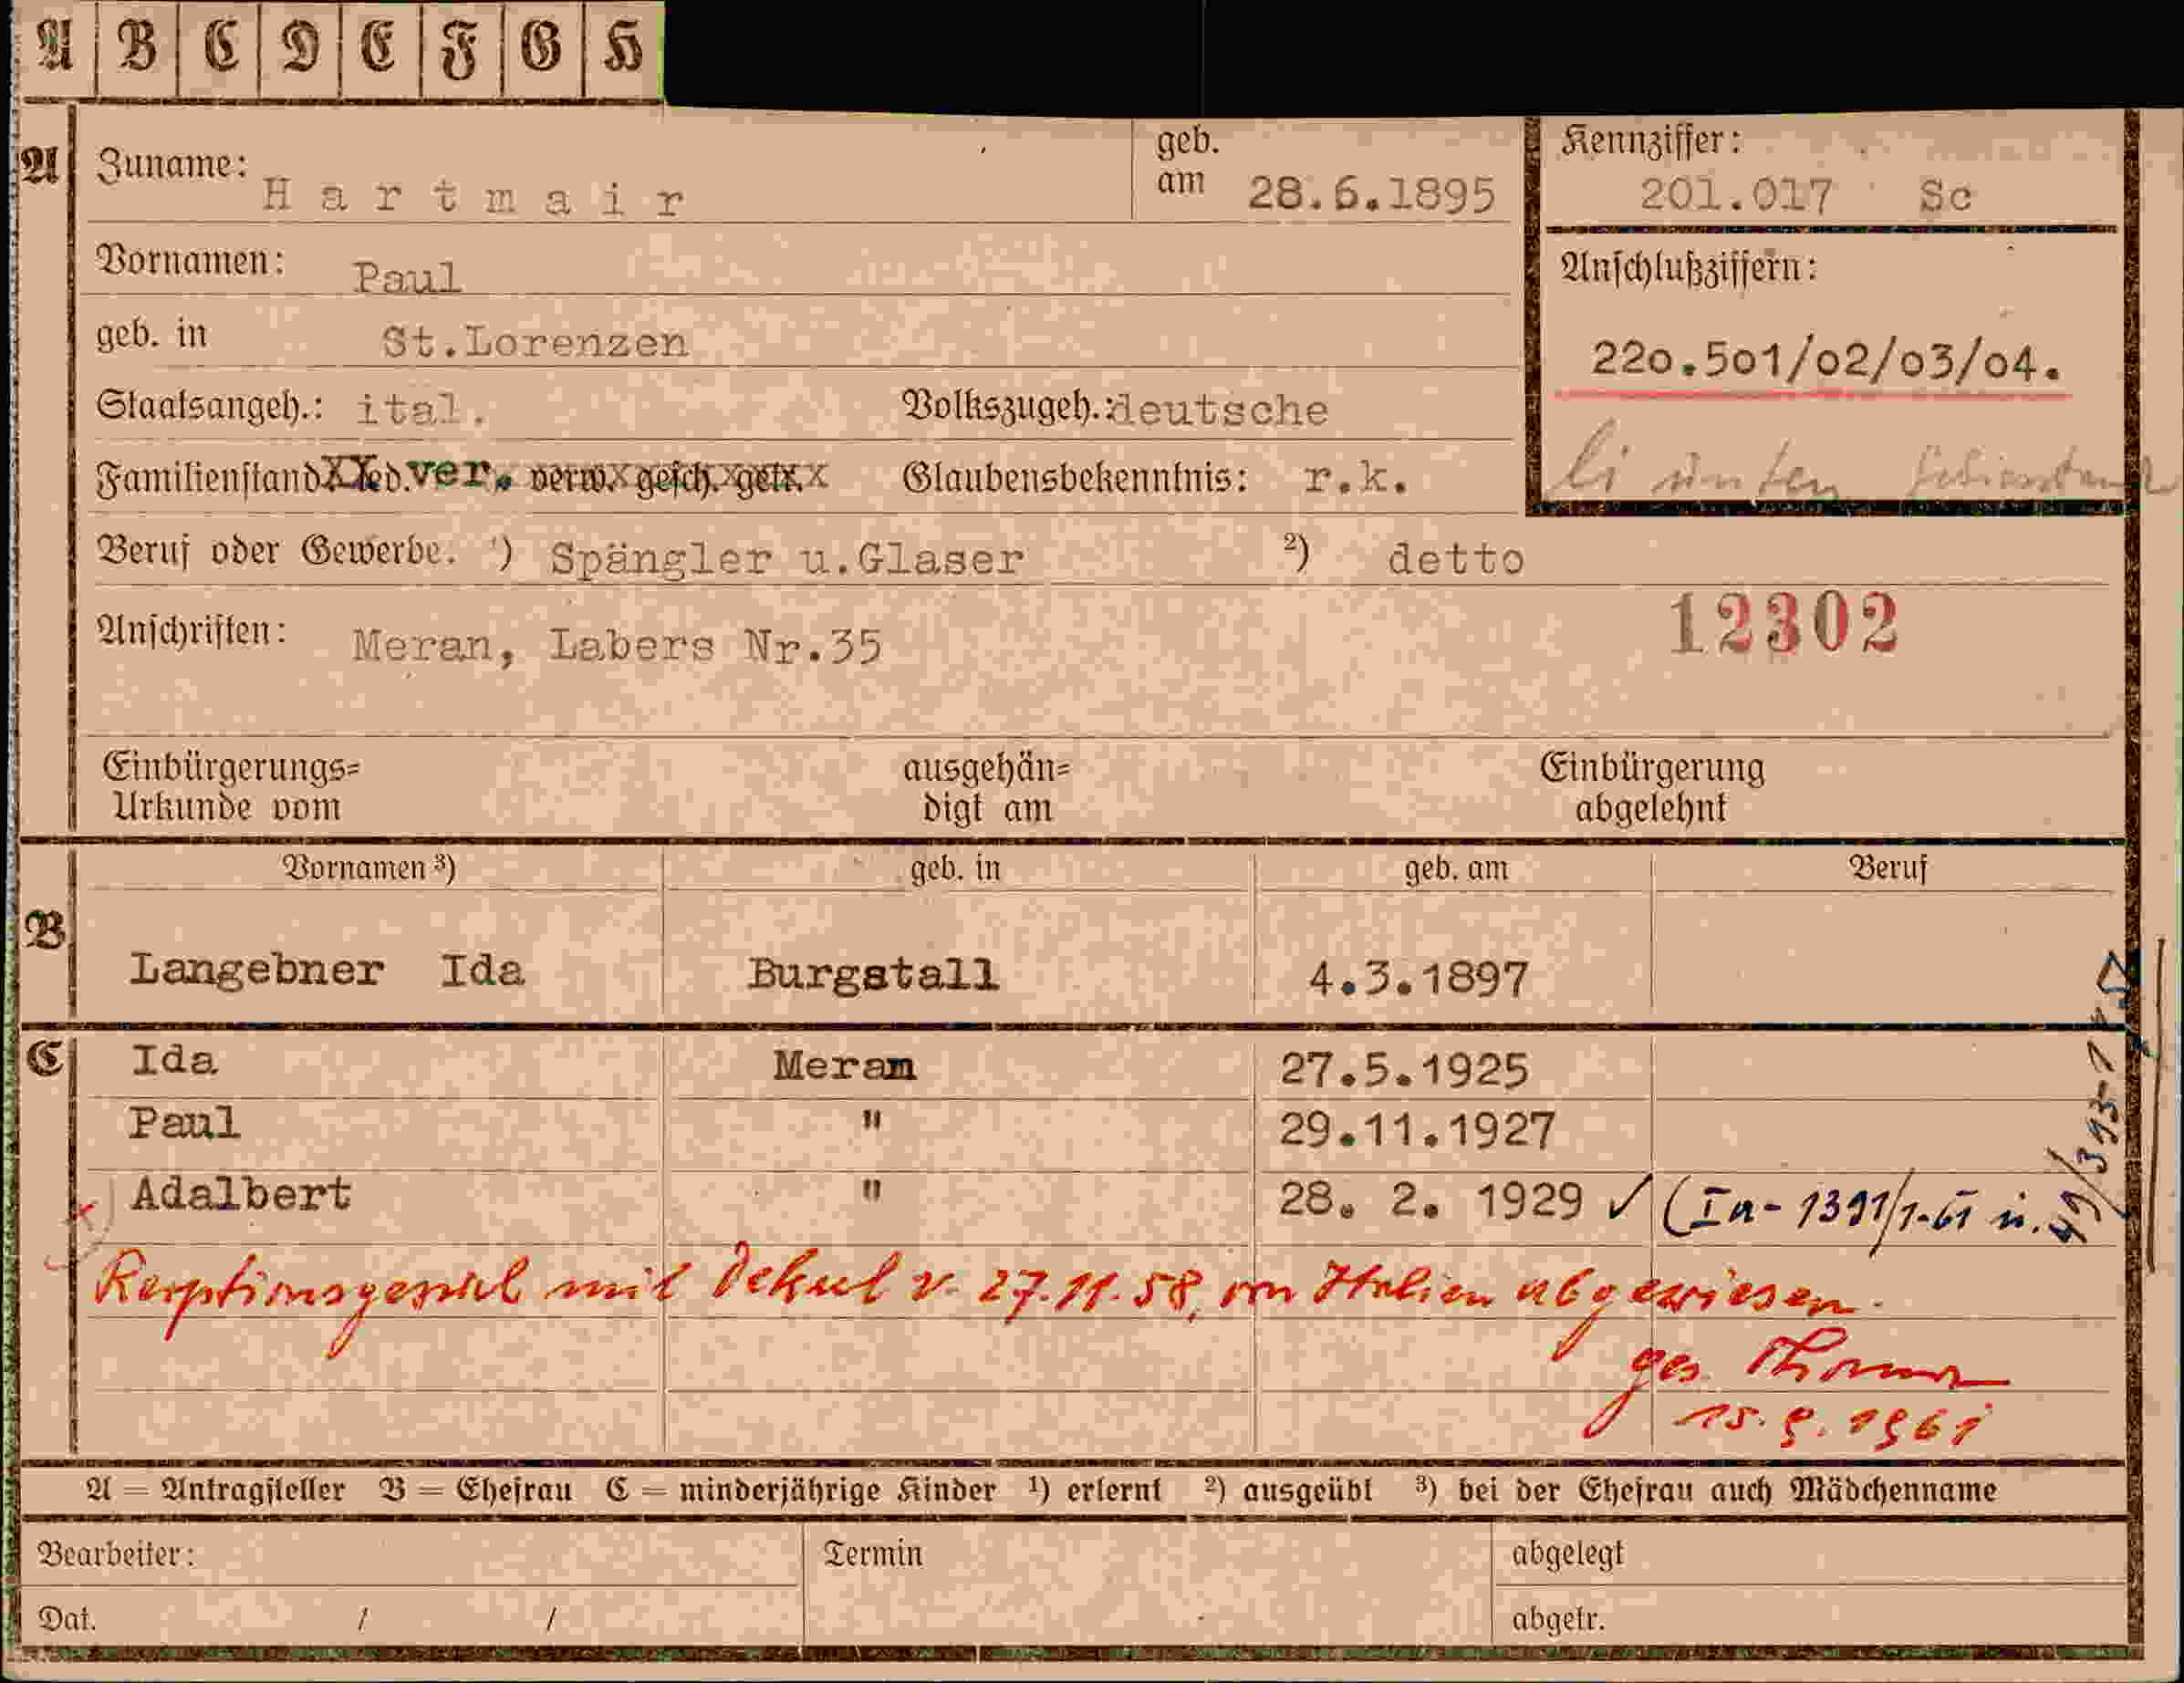 A B C D E F G H
A Zuname: Hartmair geb. am 28.6.1895 Kennziffer: 201.017 Sc
Vornamen: Paul Anschlußziffern:
geb. in St.Lorenzen 220.501/02/03/04.
Staatsangeh.: ital. Volkszugeh.: deutsche
Familienstand led. ver. verw. gesch. getr. Glaubensbekenntnis: r.k. li unten
Beruf oder Gewerbe. ¹) Spängler u.Glaser ²) detto
12302
Anschriften: Meran, Labers Nr.35
Einbürgerungs= ausgehän= Einbürgerung
Urkunde vom digt am abgelehnt
Vornamen ³) geb. in geb. am Beruf
B Langebner Ida Burgstall 4.3.1897
C Ida Meran 27.5.1925
Paul " 29.11.1927
x) Adalbert " 28. 2. 1929 ✓ (Ia- 1391/1-61 u. 49/393-1
mit Dekret v. 27.11.58, von Italien abgewiesen.
ges.
15.9.1961
A = Antragsteller B = Ehefrau C = minderjährige Kinder ¹) erlernt ²) ausgeübt ³) bei der Ehefrau auch Mädchenname
Bearbeiter: Termin abgelegt
Dat. / / abgetr.